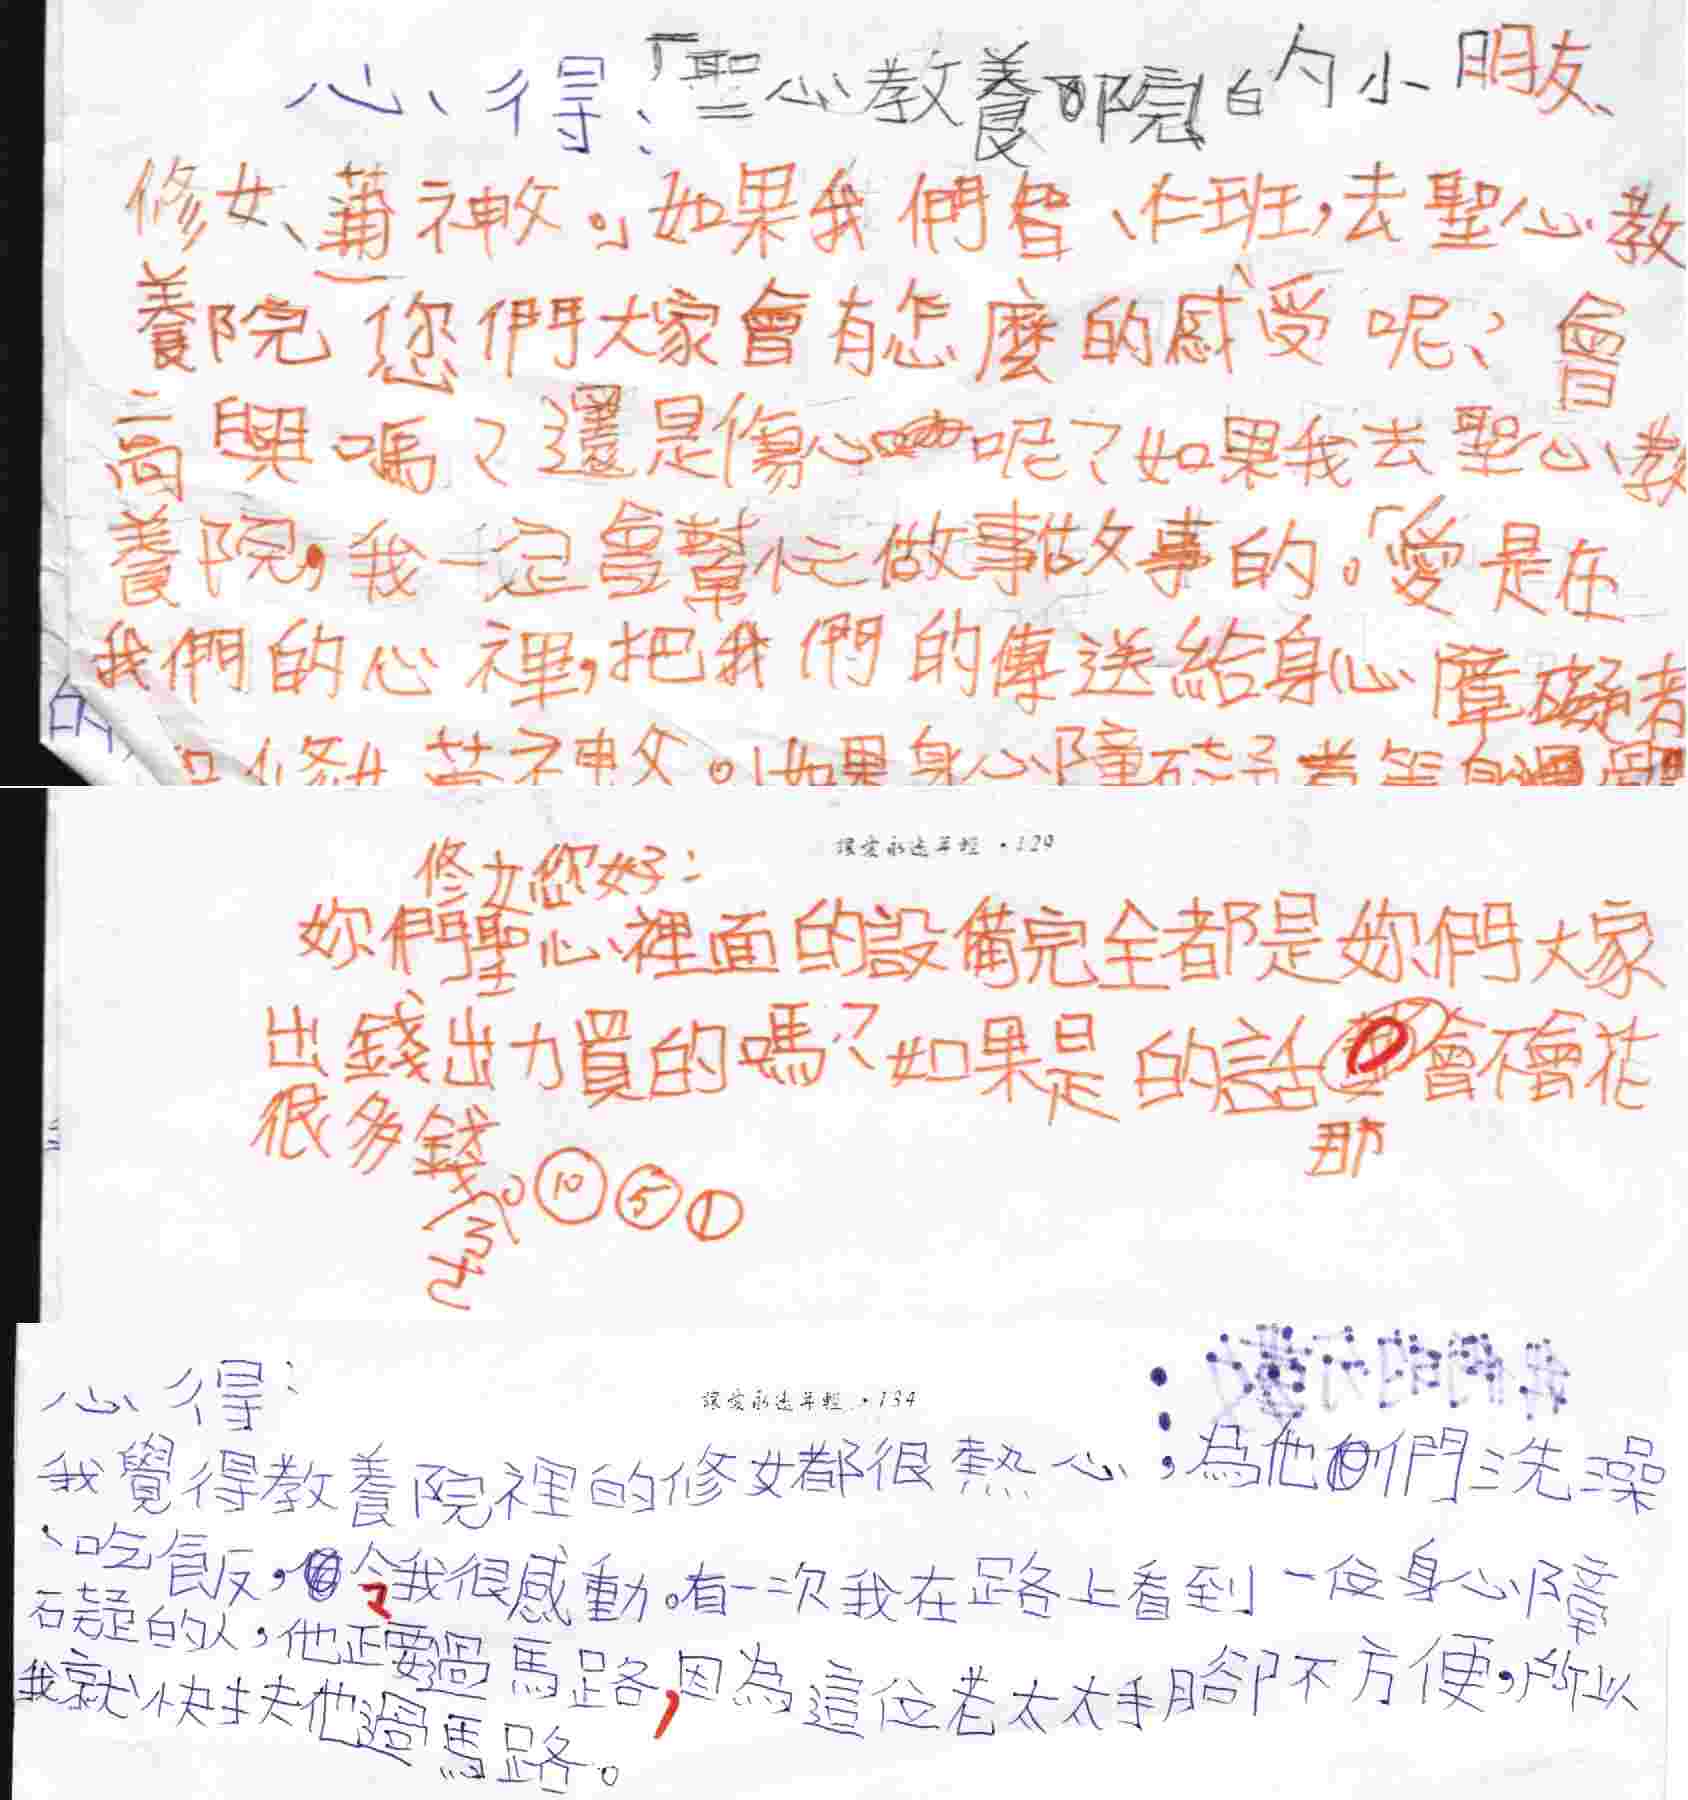 心得:「聖心教養院的小朋友、
修女、蕭神父。」如果我們智、仁班,去聖心教
養院您們大家會有怎麼的感受呢?會
高興嗎?還是傷心呢?如果我去聖心教
養院,我一定會幫忙做事做事的。「愛是在
我們的心裡,把我們的傳送給身心障礙者
和修女、蕭神父。」如果身心障礙
讓愛永遠年輕・129
修女您好:
妳們聖心裡面的設備完全都是妳們大家
出錢出力買的嗎?如果是的話會不會花
那
很多錢。⑩⑤①
心得:
讓愛永遠年輕・134
我覺得教養院裡的修女都很熱心,為他們洗澡
、吃飯,令我很感動。有一次我在路上看到一位身心障
礙的人,他正要過馬路,因為這位老太太手腳不方便,所以
我就快扶他過馬路。